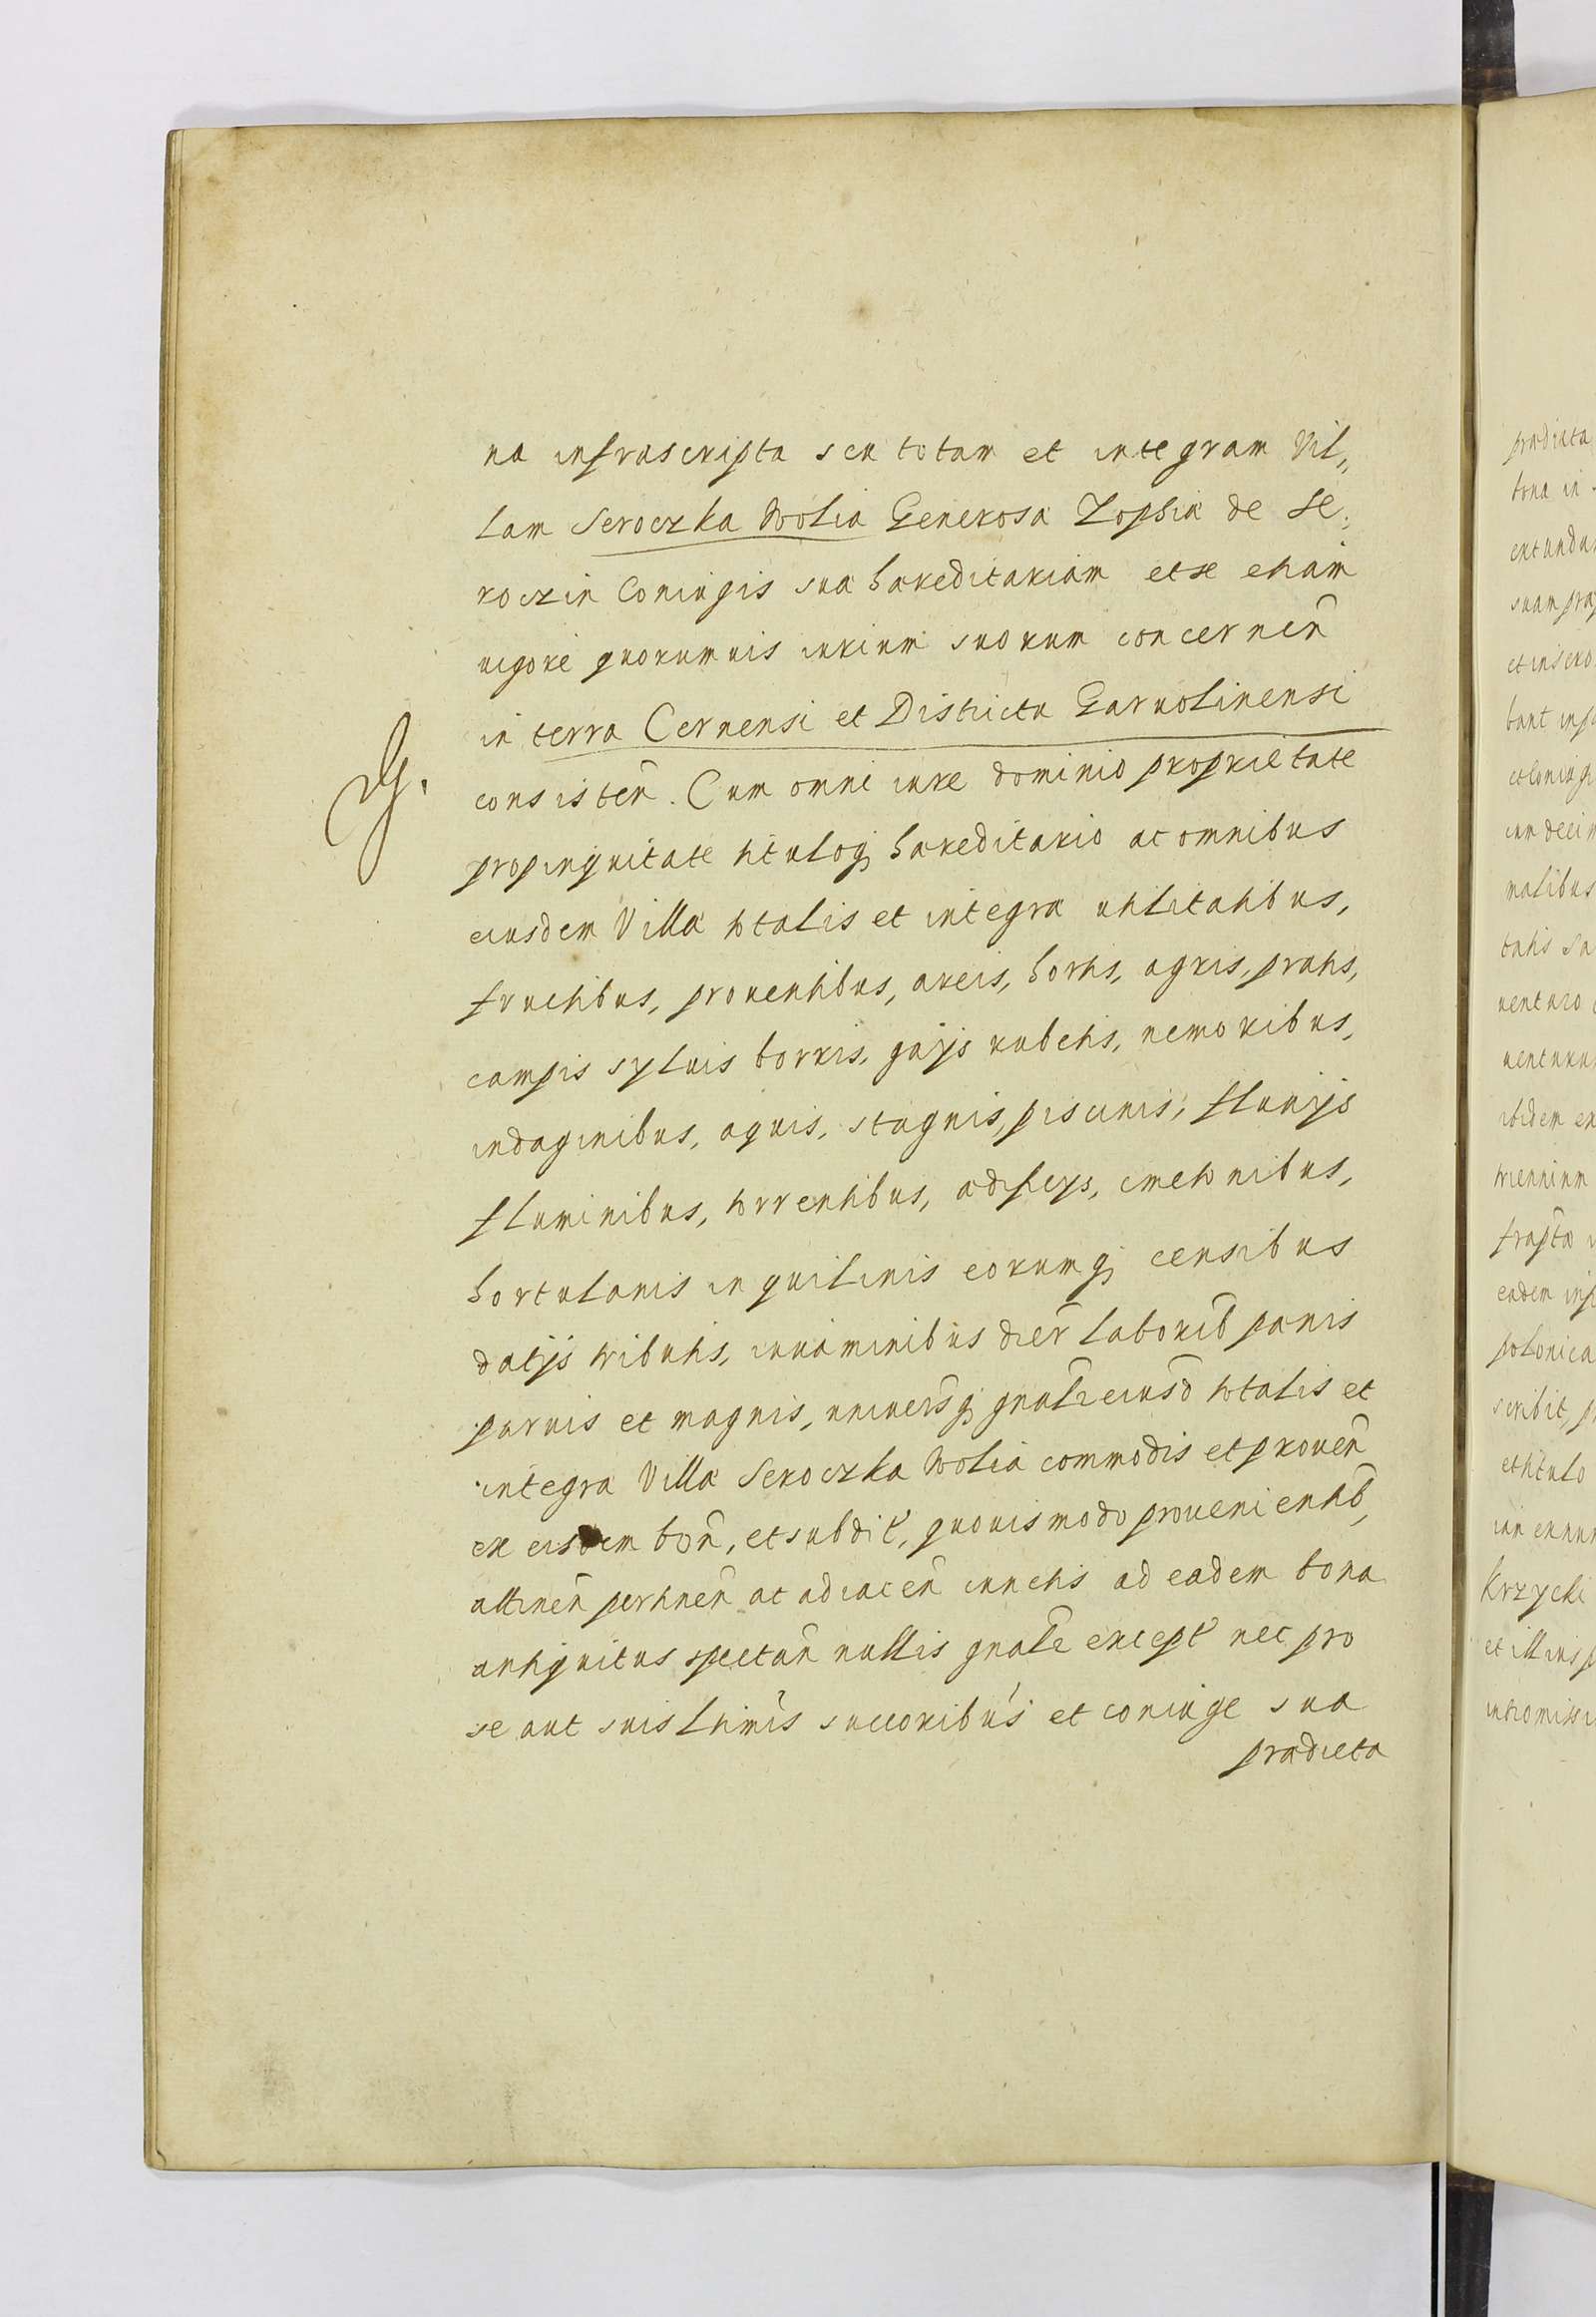 na infrascripta seu totam et integram Vil„
lam Seroczka Wolia Generosæ Zophiæ de Se„
roczin Coniugis suæ hæreditariam et se etiam
uigore quorumuis iurium suorum concernen̄
in terra Cernensi et Districtu Garuolinensi
consisten̄. Cum omni iure dominio proprietate
propinquitate tituloq; hæreditario ac omnibus
eiusdem Villæ totalis et integræ utilitatibus,
fructibus, prouentibus, areis, hortis, agris, pratis,
campis syluis borris, gajis rubetis, nemoribus,
indaginibus, aquis, stagnis, piscinis, fluuijs
fluminibus, torrentibus, ædificijs, cmetonibus,
hortulanis inquilinis eorumq; censibus
datijs tributis, iuuaminibus dier̄ laborib̄ pænis
paruis et magnis, uniuers̄q; gnal̄r eiusd̄ totalis et
integræ Villæ Seroczka Wolia commodis et prouen̄
ex eisdem bon̄, et subdit̄, quouismodo prouenientib̄,
attinen̄ pertinen̄ ac adiacen̄ cunctis ad eadem bona
antiquitus spectan̄ nullis gnal̄r except̄ nec pro
se aut suis l̄timis succoribus et coniuge sua
prædicta
prædicta
bona in
suam
et coniugi
malibus
ibidem
triennium
polonica
scribit,
et titulo
Krzycki
et illius